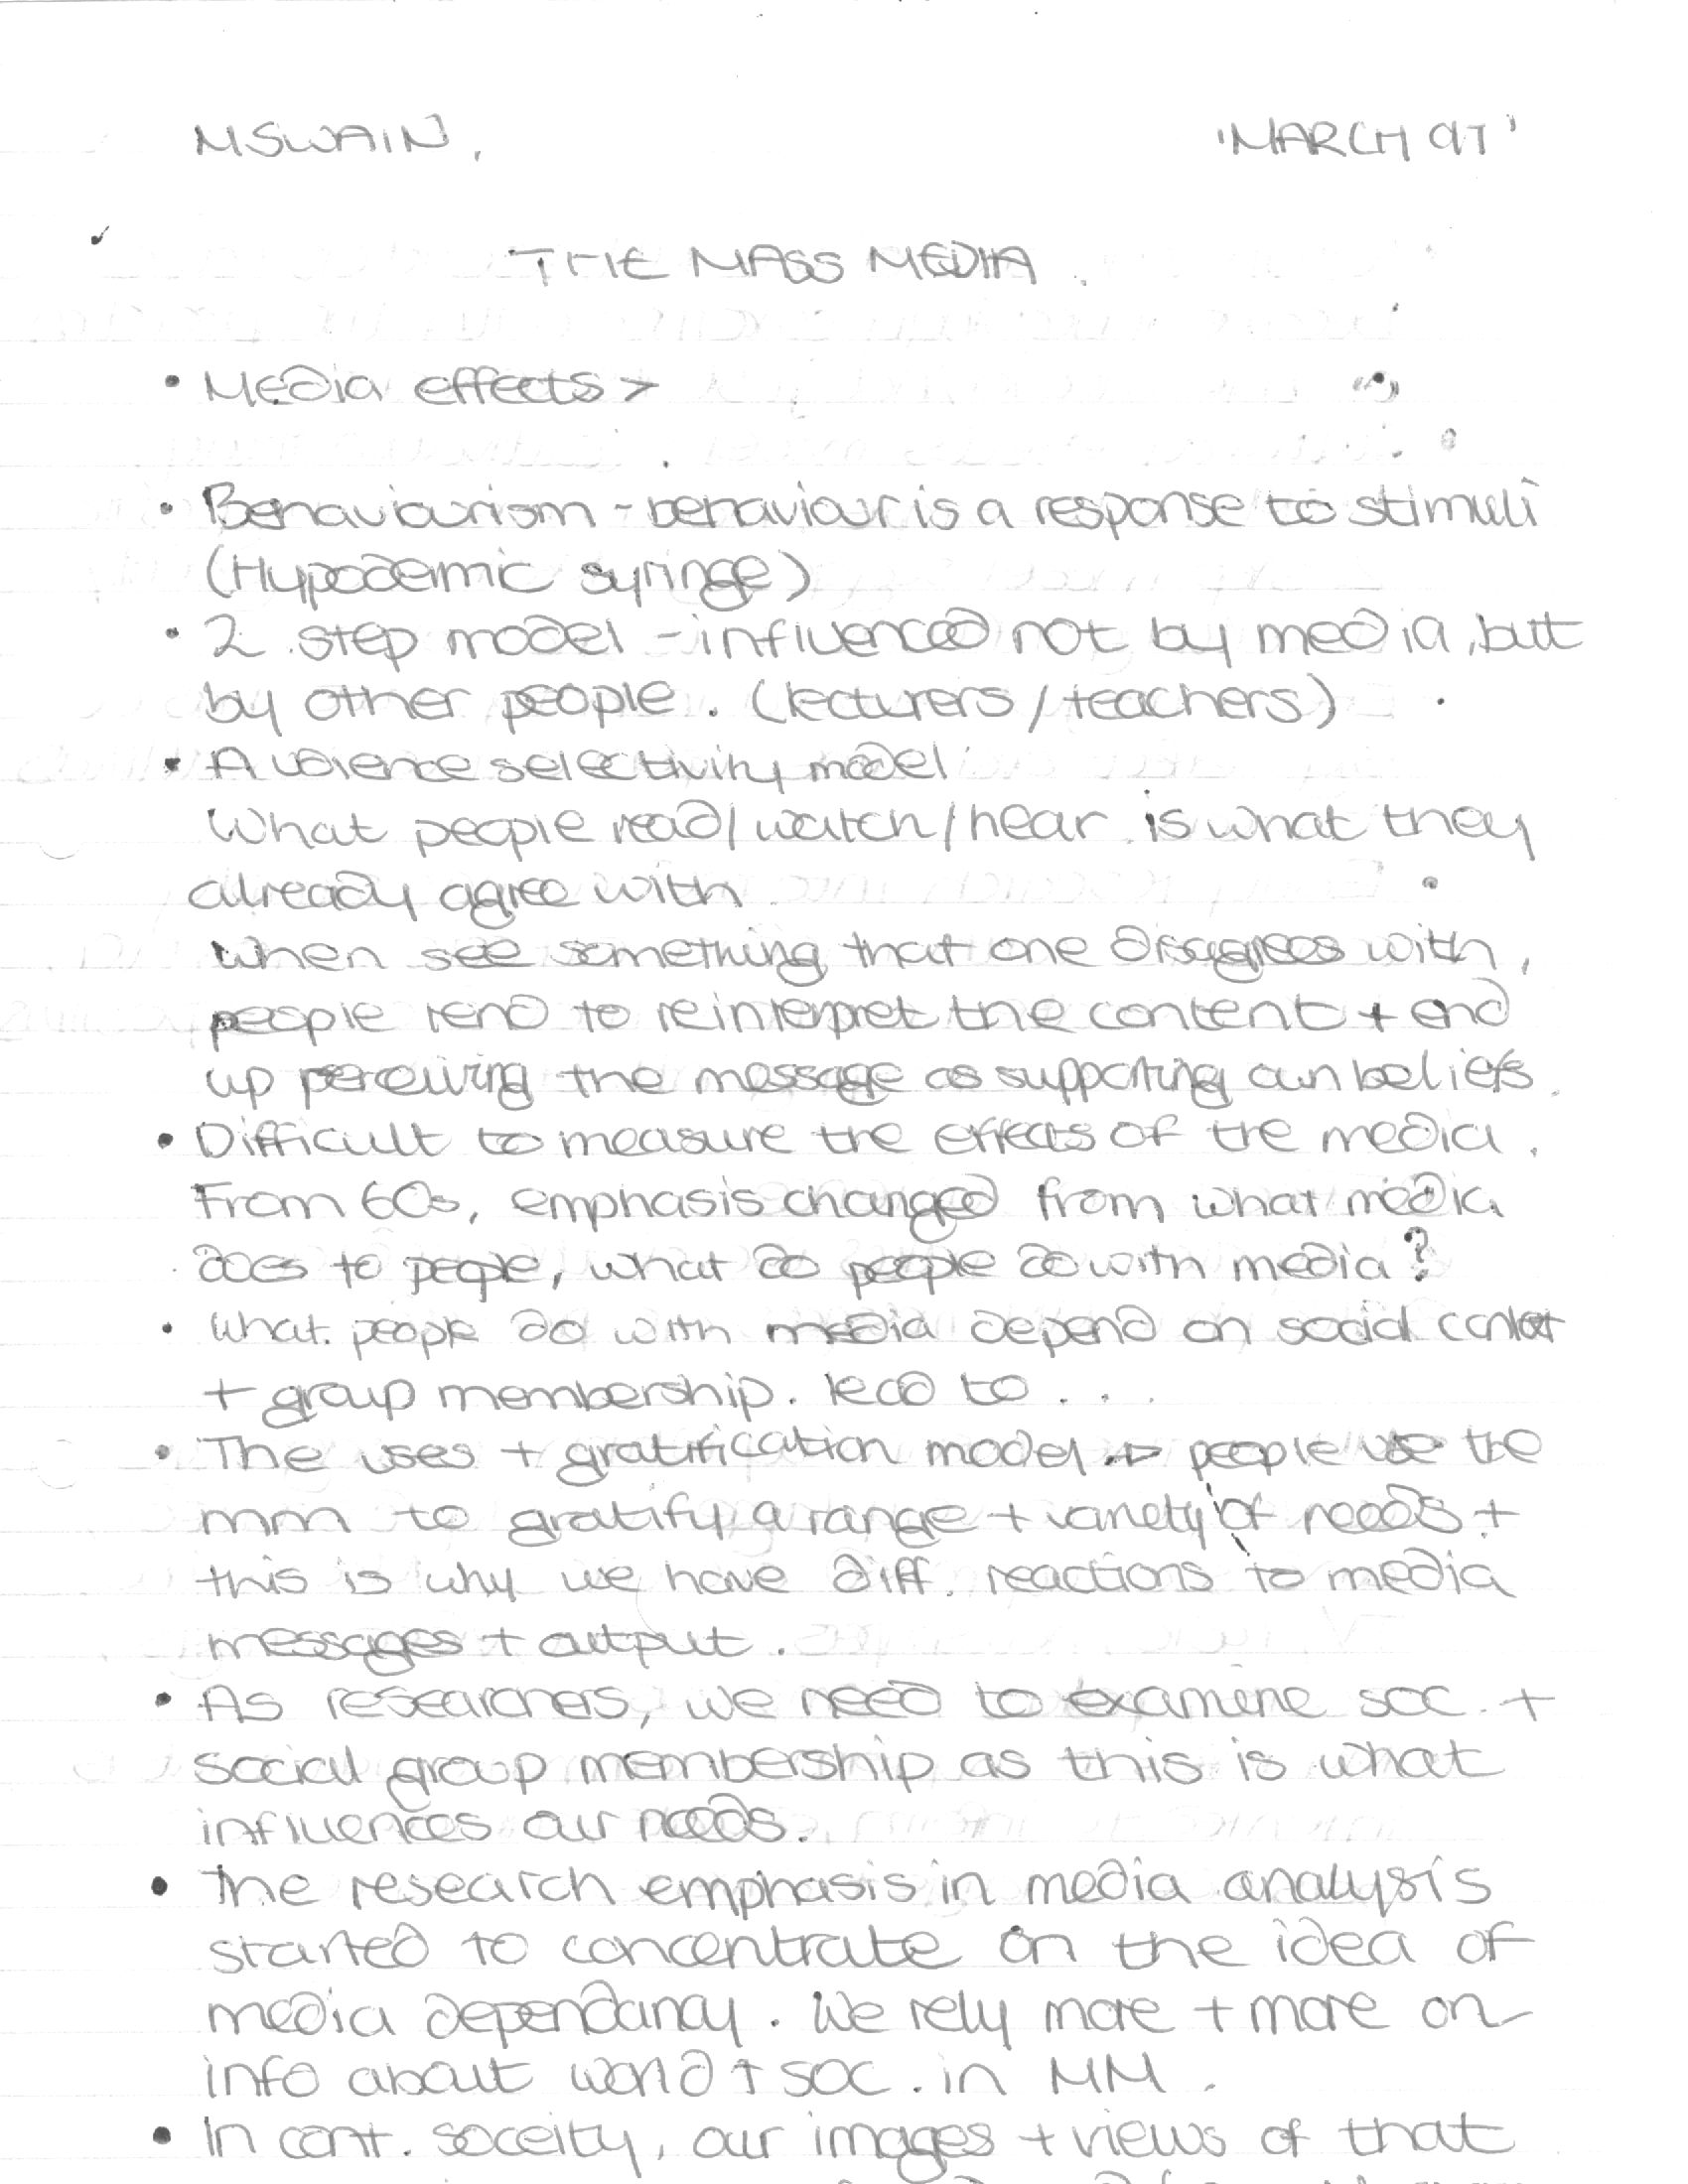 MSWAIN.
'MARCH 97'
THE MASS MEDIA.
• Media effects >
• Behaviourism - behaviour is a response to stimuli
(Hypodermic syringe)
• 2 step model - influenced not by media, but
by other people. (lecturers/teachers)
• Audience selectivity model
What people read/watch/hear is what they
already agree with
When see something that one disagrees with,
people tend to reinterpret the content + end
up perceiving the message as supporting own beliefs.
• Difficult to measure the effects of the media.
From 60s, emphasis changed from what media
does to people, what do people do with media?
• What people do with media depend on social context
+ group membership. lead to ...
• The uses + gratification model → people use the
mm to gratify a range + variety of needs +
this is why we have diff. reactions to media
messages + output.
• As researchers, we need to examine soc. +
social group membership as this is what
influences our needs.
• The research emphasis in media analysis
started to concentrate on the idea of
media dependancy. We rely more + more on
info about world + soc. in MM.
• In cont. soceity, our images + views of that